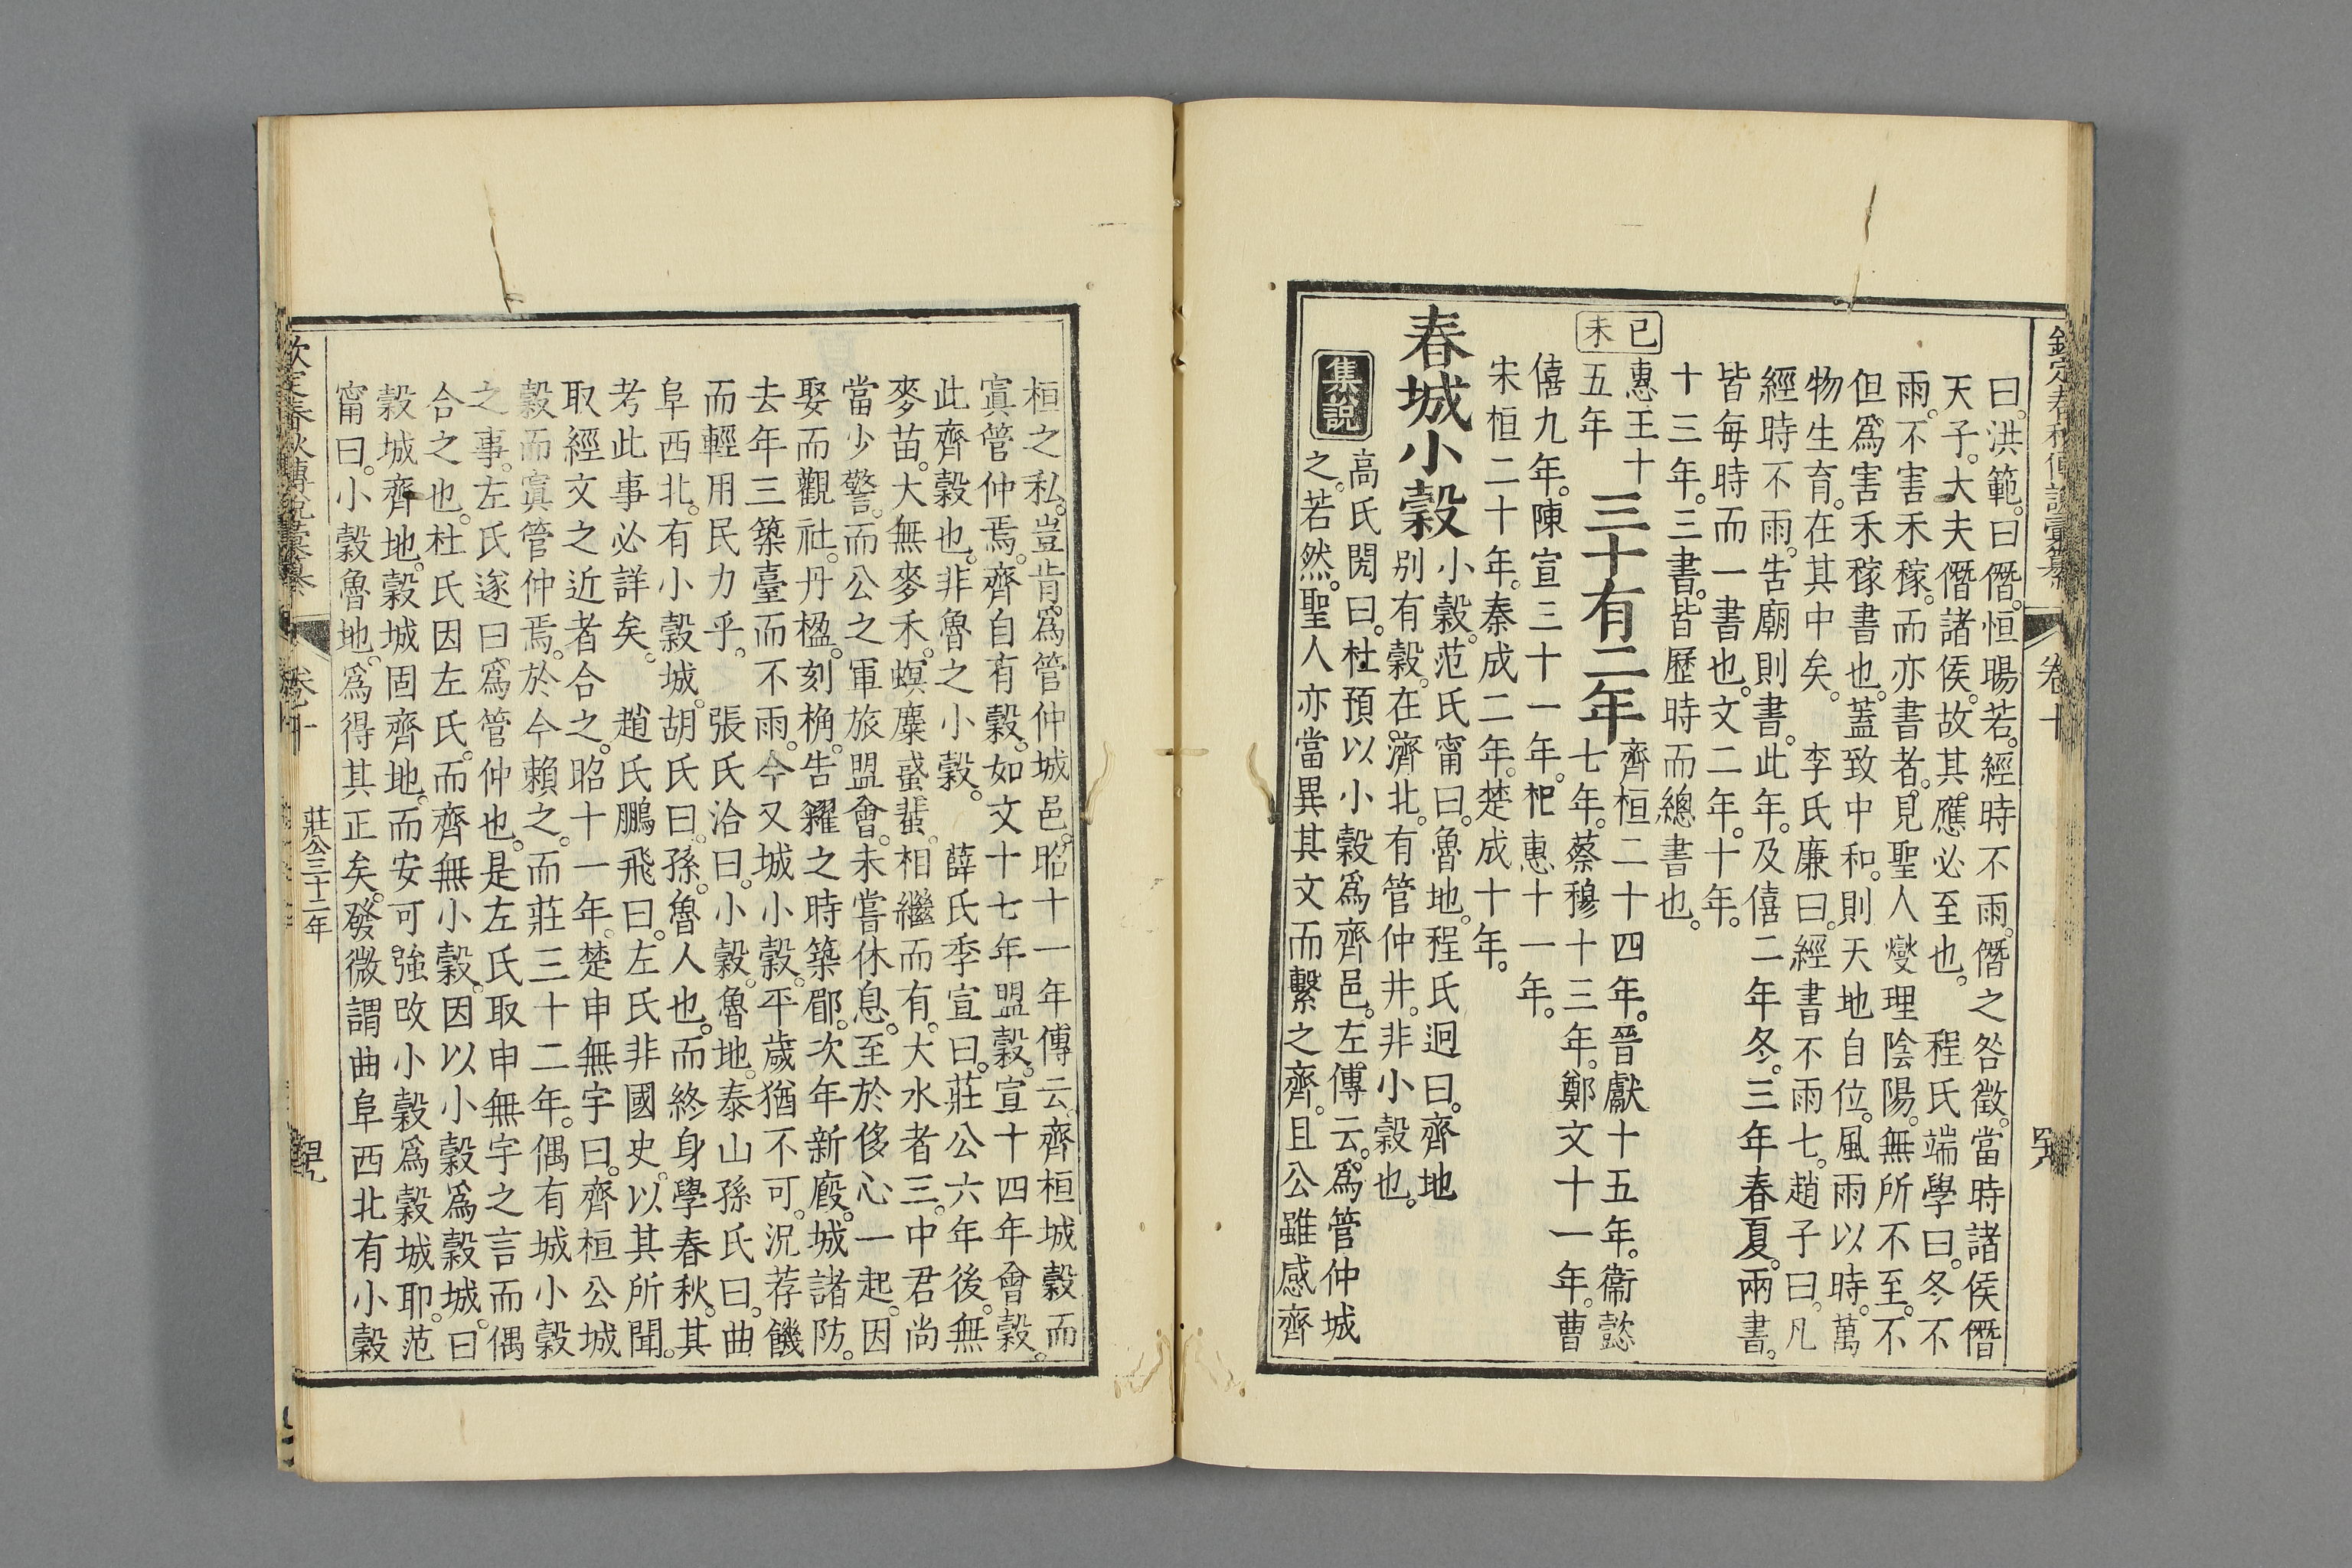 欽定春秋傳說彙纂 卷十
曰。洪範。曰僭。恒暘若。經時不雨。僭之咎徵。當時諸侯僭
天子。大夫僭諸侯。故其應必至也。 程氏端學曰。冬不
雨。不害禾稼。而亦書者。見聖人燮理陰陽。無所不至。不
但爲害禾稼書也。蓋致中和。則天地自位。風雨以時。萬
物生育。在其中矣。 李氏廉曰。經書不雨七。趙子曰。凡
經時不雨。告廟則書。此年。及僖二年冬。三年春夏。兩書。
皆每時而一書也。文二年。十年。
十三年。三書。皆歷時而總書也。
己未
惠王十
五年
三十有二年
齊桓二十四年。晉獻十五年。衞懿
七年。蔡穆十三年。鄭文十一年。曹
僖九年。陳宣三十一年。杞惠十一年。
宋桓二十年。秦成二年。楚成十年。
春城小穀
小穀。范氏甯曰。魯地。程氏迥曰。齊地
别有穀。在濟北。有管仲井。非小穀也。
集說
高氏閌曰。杜預以小穀爲齊邑。左傳云。爲管仲城
之。若然。聖人亦當異其文而繫之齊。且公雖感齊
桓之私。豈肯爲管仲城邑。昭十一年傳云。齊桓城穀而
寘管仲焉。齊自有穀。如文十七年盟穀。宣十四年會穀。
此齊穀也。非魯之小穀。 薛氏季宣曰。莊公六年後。無
麥苗。大無麥禾。螟麋蜮蜚。相繼而有。大水者三。中君尚
當少警。而公之軍旅盟會。未嘗休息。至於侈心一起。因
娶而觀社。丹楹。刻桷。告糴之時築郿。次年新廄。城諸防。
去年三築臺而不雨。今又城小穀。平歲猶不可。況荐饑
而輕用民力乎。 張氏洽曰。小穀。魯地。泰山孫氏曰。曲
阜西北。有小穀城。胡氏曰。孫。魯人也。而終身學春秋。其
考此事必詳矣。 趙氏鵬飛曰。左氏非國史。以其所聞。
取經文之近者合之。昭十一年。楚申無宇曰。齊桓公城
穀而寘管仲焉。於今賴之。而莊三十二年。偶有城小穀
之事。左氏遂曰爲管仲也。是左氏取申無宇之言而偶
合之也。杜氏因左氏。而齊無小穀。因以小穀爲穀城。曰
穀城。齊地。穀城固齊地。而安可強改小穀爲穀城耶。范
甯曰。小穀魯地。爲得其正矣。發微謂曲阜西北有小穀
欽定春秋傳說彙纂 卷十 莊公三十二年